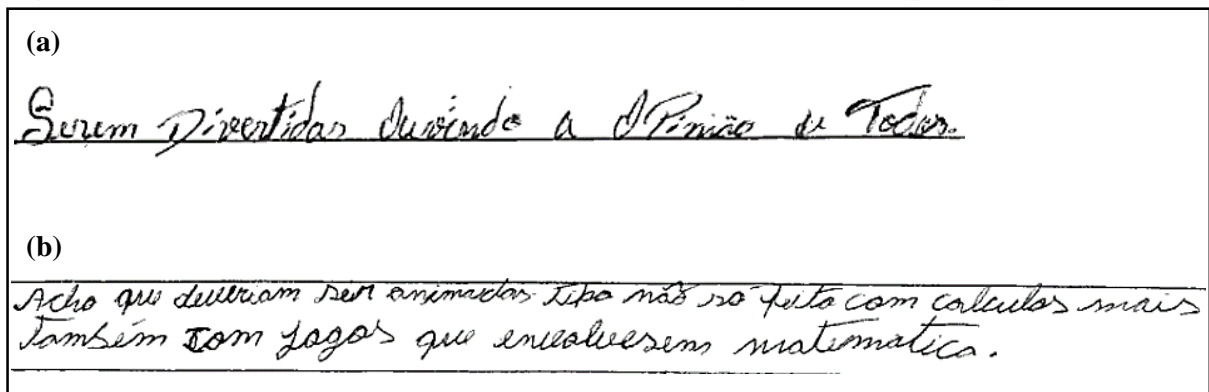 (a)
Serem Divertidas Ouvindo a OPinião de Todos.
(b)
Acho que deveriam ser animadas tipo não só feita com calculos mais
Também com jogos que envolvesem matematica.